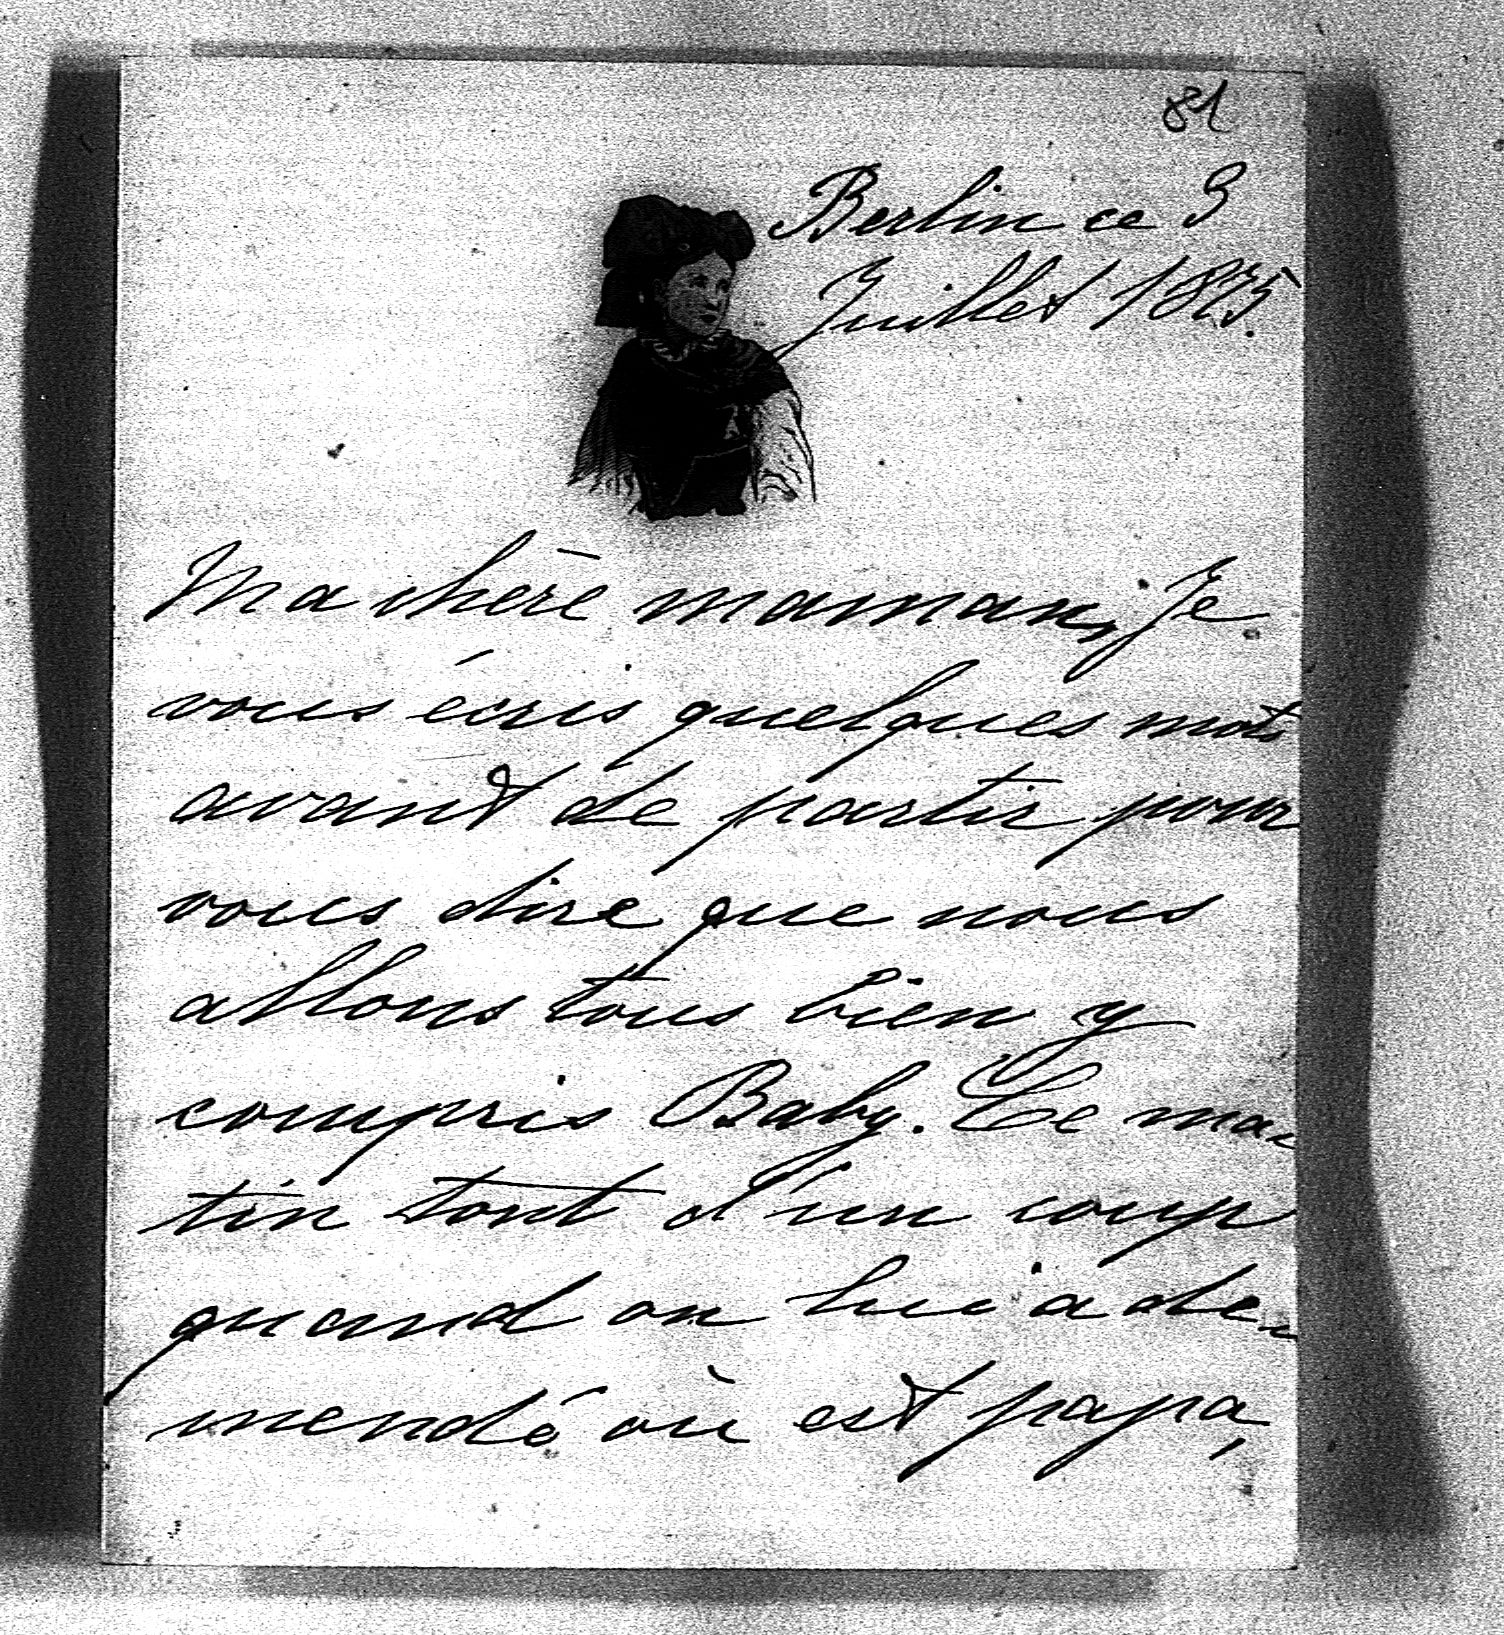 81
Berlin ce 3
Juillet 1875.
Ma chère maman, Je
vous écris quelques mots
avant de partir pour
vous dire que nous
allons tous bien y
compris Baby. Ce ma-
tin tout d'un coup
quand on lui a de-
mendé où est papa,